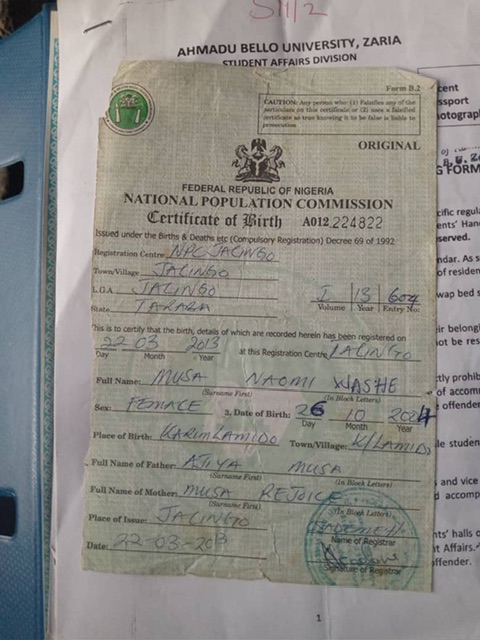 SII/2
AHMADU BELLO UNIVERSITY, ZARIA
STUDENT AFFAIRS DIVISION
Form B.2
CAUTION: Any person who (1) Falsifies any of the
particulars on this certificate or (2) uses a falsified
certificate as true knowing it to be false is liable to
prosecution
ORIGINAL
FEDERAL REPUBLIC OF NIGERIA
NATIONAL POPULATION COMMISSION
Certificate of Birth A012 224822
Issued under the Births & Deaths etc (Compulsory Registration) Decree 69 of 1992
Registration Centre NPC JALINGO
Town/Village JALINGO
L.G.A. JALINGO I 13 604
Volume Year Entry No:
State TARABA
This is to certify that the birth, details of which are recorded herein has been registered on
22 03 2013 at this Registration Centre JALINGO
Day Month Year
Full Name: MUSA NAOMI WASHE
(Surname First) (In Block Letters)
Sex: FEMALE 3, Date of Birth: 26 10
Day Month Year
Place of Birth: KARIMLAMIDO Town/Village: K/LAMIDO
Full Name of Father: ATIYA MUSA
(Surname First) (In Block Letters)
Full Name of Mother: MUSA REJOICE
(Surname First) (In Block Letters)
Place of Issue: JALINGO
Name of Registrar
Date: 22-03-2013
Signature of Registrar
1
cent
ssport
otograp
G FORM
cific regula
ents' Han
served.
ndar. As s
of residen
wap bed s
ir belongi
ot be res
tly prohib
of accom
offender
le studen
and vice
d accomp
nts' halls o
t Affairs."
ffender.